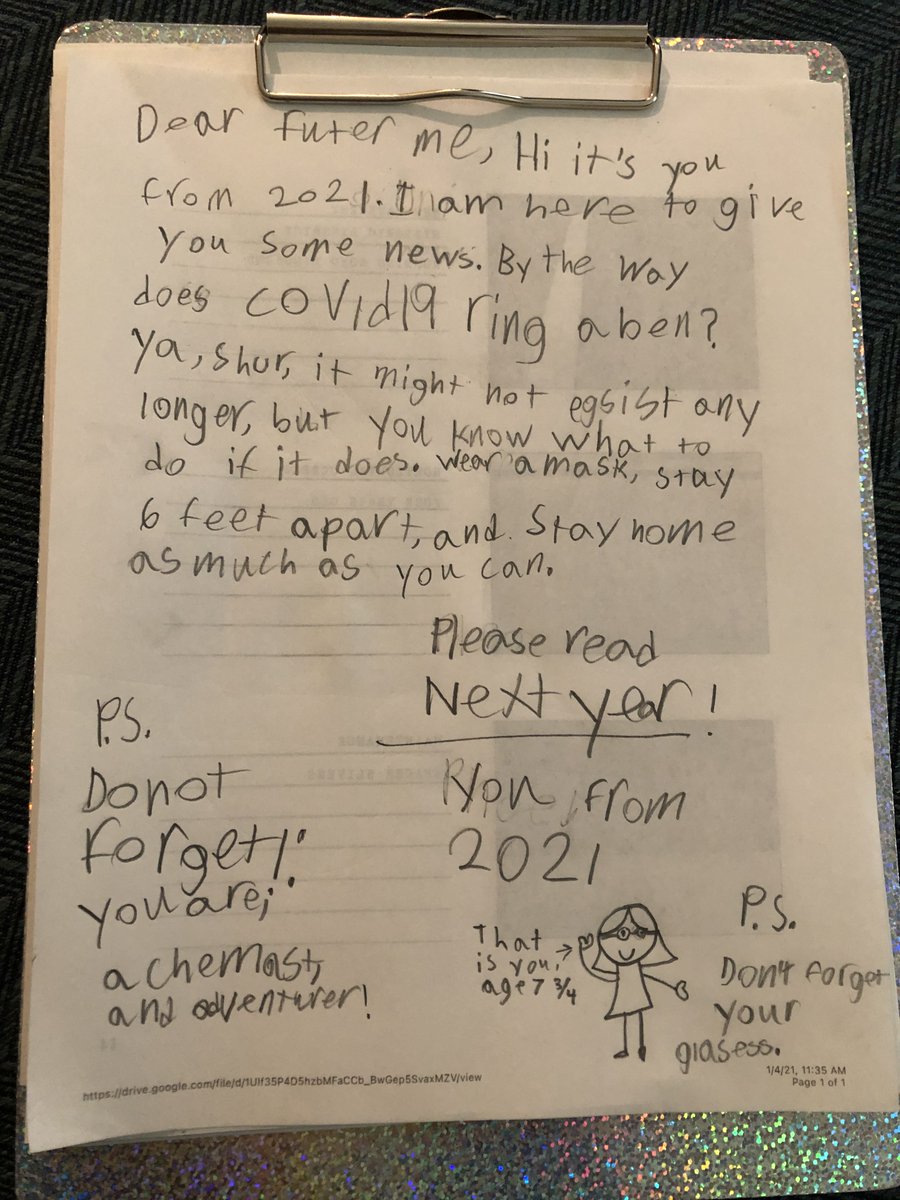 Dear futer me, Hi it's you
from 2021. I am here to give
you some news. By the way
does covid19 ring a ben?
Ya, shur, it might not egsist any
longer, but you know what to
do if it does. wear a mask, stay
6 feet apart, and stay home
as much as you can.
Please read
Next year!
P.S.
Do not
Forget!:
you are;
a chemast,
and adventurer!
You from
2021
That
is you,
age 7 3/4
P.S.
Don't forget
your
glasess.
https://drive.google.com/file/d/1UIf35P4D5hzbMFaCCb_BwGep5SvaxMZV/view
1/4/21, 11:35 AM
Page 1 of 1